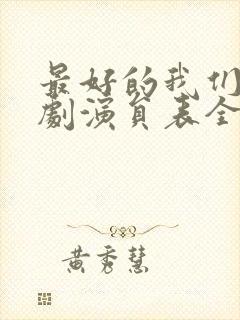 最好的我们
劇演員表全
黄秀慧